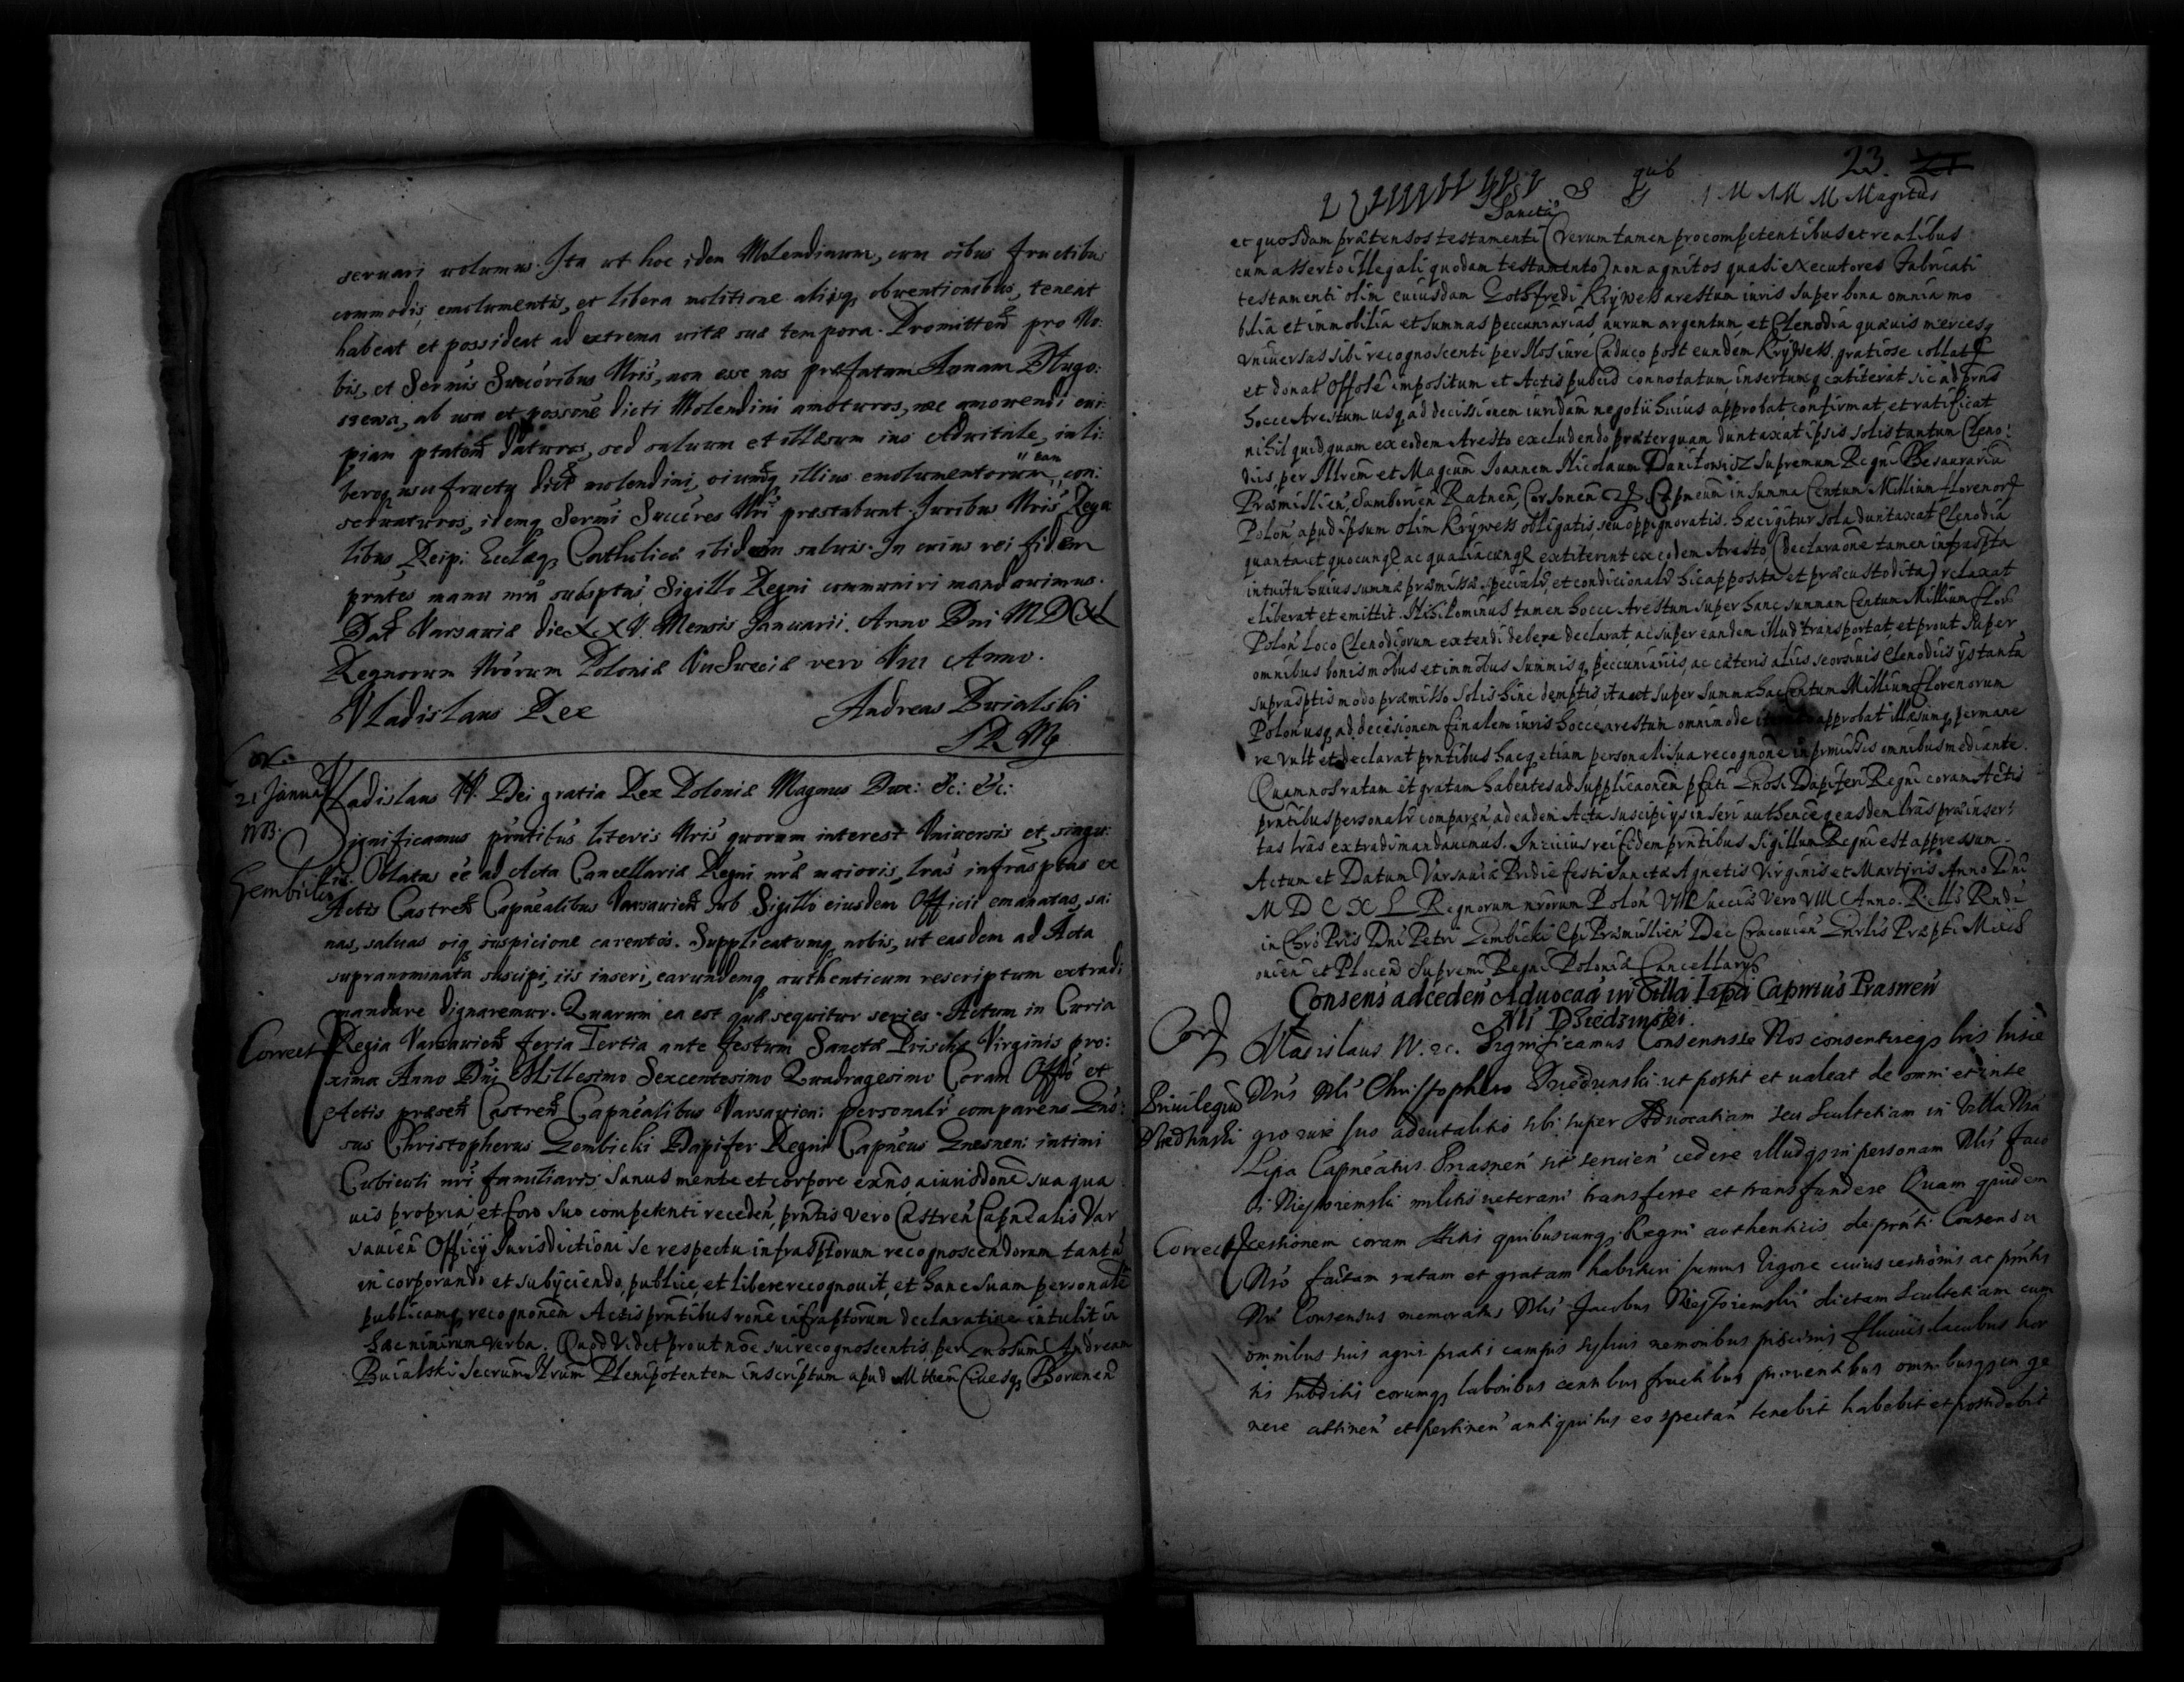 seruari volumus. Ita ut hoc idem Molendinum, cum oibus fructibus
commodis, emolumentis, et libera molitione aliisq obuentionibus, teneat
habeat et possideat ad extrema vitæ suæ tempora. Promitten pro No:
bis, et Sermis Succoribus Nris, non esse nos præfatam Annam Dlugo:
szewa, ab usu et possone dicti Molendini amoturos, nec amouendi cui:
piam ptatem daturos, sed saluum et illæsum ius Aduitale, in li:
beroq usufructu dict molendini, oiumq illius emolumentorum, eam con:
seruaturos, idemq Sermi Succres Nri præstabunt. Juribus Nris Rega
libus Reip: Ecclæq Catholicæ ibidem saluis. In cuius rei fidem
pntes manu nra subsptas Sigillo Regni communiri mandauimus.
Dat Varsauiæ die XXV. Mensis Januarii. Anno Dni MDCXL
Regnorum Nrorum Poloniæ VII Sueciæ vero VIII Anno.
Vladislaus Rex Andreas Buialski
SRM
Cor.
21 Januar
Vladislaus IV. Dei gratia Rex Poloniæ Magnus Dux: &c: &c:
NB.
Significamus pntibus literis Nris quorum interest Vniuersis et singu:
Gembicki
lis. Oblatas ee ad Acta Cancellariæ Regni nræ maioris, lras infrasptas ex
Actis Castren Capnealibus Varsauien sub Sigillo eiusdem Officii emanatas, sa:
nas, saluas oiq suspicione carentes. Supplicatumq nobis, ut easdem ad Acta
supranominata suscipi, iis inseri, earundemq authenticum rescriptum extradi
mandare dignaremur. Quarum ea est quæ sequitur series. Actum in Curia
Correct
Regia Varsauien feria Tertia ante festum Sanctæ Priscæ Virginis pro:
xima Anno Dni Millesimo Sexcentesimo Quadragesimo Coram Offo et
Actis præsen Castren Capnealibus Varsauien: personalr comparens Gno:
sus Christopherus Gembicki Dapifer Regni Capneus Gnesnen: intimi
Cubiculi nri familiaris, Sanus mente et corpore exns, a iurisdone sua qua
uis propria, et foro suo competenti receden, pntis vero Castren Capnealis Var
sauien Officij Jurisdictioni se respectu infrasptorum recognoscendorum tantu
incorporando et subijciendo, publice, et libere recognouit, et hanc suam personale
publicamq recognonem Actis pntibus rone infraptorum declaratiue intulit in
hæc nimirum verba. Quod Videt prout noe sui recognoscentis per Gnosum Andream
Buialski Secrum Nrum Plenipotentem inscriptum apud Actaq Borunen
23.
Magrtus
Sanctâ
et quosdam prætensos testamenti (verum tamen pro competentibus et realibus
cum asserto illegali quodam testamento) non agnitos quasi executores fabricati
testamenti olim cuiusdam Gothfredi Krijwess arestum iuris super bona omnia mo
bilia et immobilia et summas peccuniarias, aurum argentum et Clenodia quæuis mercesq
vniuersas sibi recognoscenti per Nos iure Caduco post eundem Krijwess, gratiose collat
et donat Offose impositum et Actis pubcis connotatum, insertumq extiterat sic ad prns
hocce Arestum usq ad decissionem iuridam negotii huius approbat, confirmat, et ratificat
nihil quidquam ex eodem Aresto excludendo præterquam duntaxat ipsis solis tantum Cleno:
diis, per Illrem et Magcum Joannem Nicolaum Danilowisz Supremum Regni Thesaurariu
Præmislien, Samborien Ratnen, Corsonen &c Cpneum in summa Centum Millium florenor
Polon, apud ipsum olim Krijwess obligatis, seu oppignoratis. hæc igitur sola duntaxat Clenodia
quantacunq quocunq ac qualiacunq extiterint ex eodem Aresto (declaraone tamen infraspta
intuitu huius summæ præmissæ specialr, et condicionalr hic apposita et præcustodita) relaxat
eliberat et emittit. Nihilominus tamen hocce Arestum super hanc summan Centum Millium flor
Polon loco Clenodiorum extendi debere declarat, ac super eandem illud transportat, et prout super
omnibus bonis mobus et immobus summisq peccuniariis, ac cæteris aliis seorsiuis Clenodiis ijs tantu
suprasptis modo præmisso solis hinc demptis, ita et super summa hac Centum Millium florenorum
Polon usq ad decisionem finalem iuris hocce arestum omnimode approbat illæsumq permane
re vult et declarat pntibus hacq etiam personali sua recognone in præmissis omnibus mediante.
Quam nos ratam et gratam habentes ad supplicaonem pfati Gnosi Dapiferi Regni coram Actis
pntibus personalr comparen, ad eadem Acta suscipi ijs inseri authenceq easdem lras præinser:
tas lras extradi mandauimus. In cuius rei fidem pntibus Sigillum Regni est appressum.
Actum et Datum Varsauiæ Pridie festi Sanctæ Agnetis Virginis et Martyris Anno Dni
MDCXL Regnorum nrorum Polon VIII Sueciæ vero VIII Anno. Rells Rndi
in Chro Pris Dni Petri Gembicki Epi Præmislien Dec Cracouien Gnrlis Præpti Miech
ouien et Plocen Supremi Regni Poloniæ Cancellarij
Consens ad ceden Aduocaa in Villa Lipa Capnius Prasnen
Nli Dziedzinski.
Cor
Vladislaus IV. &c. Significamus Consensisse Nos consentireq lris hisce
Priuilegiu
Nris Nli Christophero Dziedzinski ut possit et ualeat de omni et inte
Dziedzinski
gro iure suo aduitalitio sibi super Aduocatiam seu Scultetiam in Villa Nra
Lipa Capneatus Prasnen sit seruien cedere illudq in personam Nlis Jaco
bi Niestoiemski militis ueterani transferre et transfundere Quam quidem
Correct
cessionem coram Actis quibuscunq Regni authenticis de pnti Consensu
Nro factam ratam et gratam habituri sumus Vigore cuius cessionis ac pntis
Nri Consensus memoratus Nlis Jacobus Niestoiemski dictam Scultetiam cum
omnibus suis agris pratis campis syluis nemoribus piscinis fluuiis lacubus hor
tis subditis eorumq laboribus censibus fructibus prouentibus omnibusq in ge
nere attinen et pertinen antiquitus eo spectan tenebit habebit et possidebit